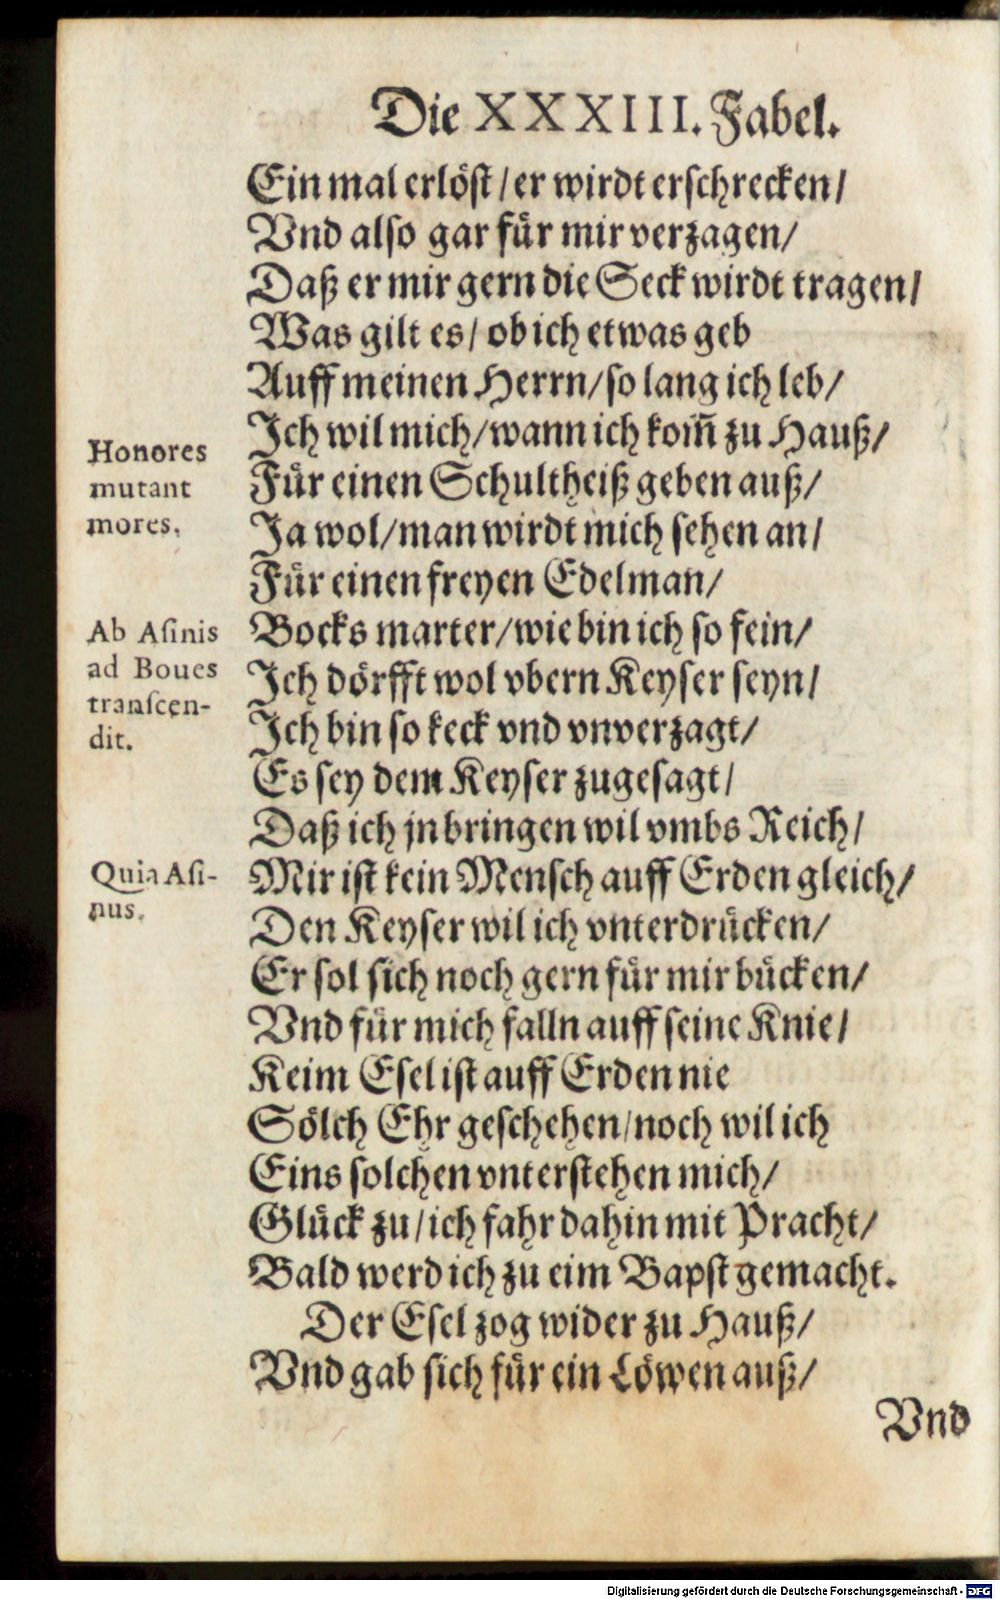 Die XXXIII. Fabel.
Ein mal erlöst / er wirdt erschrecken /
Vnd also gar für mir verzagen /
Daß er mir gern die Seck wirdt tragen /
Was gilt es / ob ich etwas geb
Auff meinen Herrn / so lang ich leb /
Jch wil mich / wann ich kom̃ zu Hauß /
Honores
mutant
mores.
Für einen Schultheiß geben auß /
Ja wol / man wirdt mich sehen an /
Für einen freyen Edelman /
Ab Asinis
ad Boues
transcen-
dit.
Bocks marter / wie bin ich so fein /
Jch dörfft wol vbern Keyser seyn /
Jch bin so keck vnd vnverzagt /
Es sey dem Keyser zugesagt /
Daß ich jn bringen wil vmbs Reich /
Quia Asi-
nus.
Mir ist kein Mensch auff Erden gleich /
Den Keyser wil ich vnterdrücken /
Er sol sich noch gern für mir bücken /
Vnd für mich falln auff seine Knie /
Keim Esel ist auff Erden nie
Sölch Ehr geschehen / noch wil ich
Eins solchen vnterstehen mich /
Glück zu / ich fahr dahin mit Pracht /
Bald werd ich zu eim Bapst gemacht.
Der Esel zog wider zu Hauß /
Vnd gab sich für ein Löwen auß /
Vnd
Digitalisierung gefördert durch die Deutsche Forschungsgemeinschaft - DFG